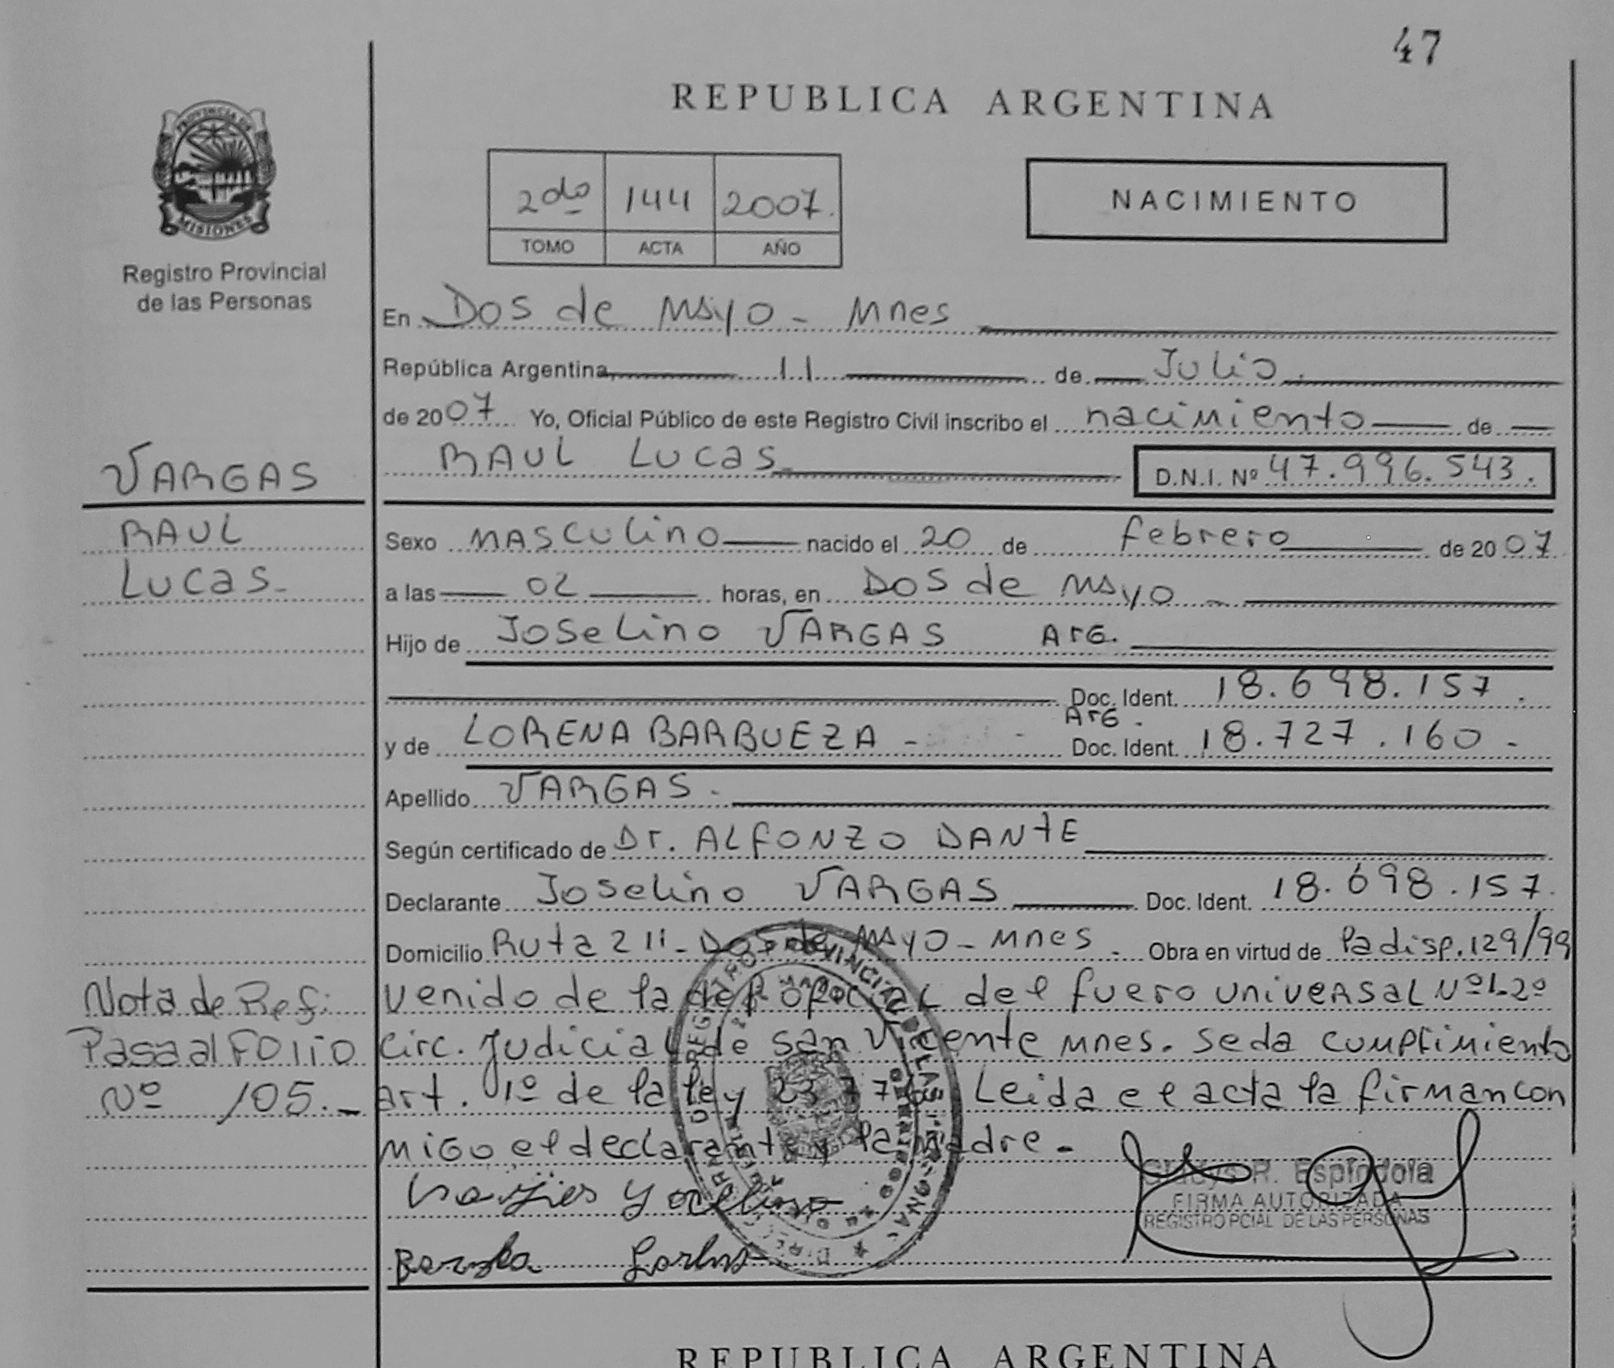 47
REPUBLICA ARGENTINA
PROVINCIA DE
MISIONES
Registro Provincial
de las Personas
2do 144 2007.
TOMO ACTA AÑO
NACIMIENTO
En Dos de Mayo - Mnes
República Argentina, 11 de Julio.
de 2007 Yo, Oficial Público de este Registro Civil inscribo el nacimiento de
RAUL LUCAS D.N.I. Nº 47.996.543.
VARGAS
RAUL
LUCAS-
Sexo MASCULINO nacido el 20 de febrero de 2007
a las 02 horas, en Dos de Mayo -
Hijo de JOSELINO VARGAS ArG.
Doc. Ident. 18.698.157.
ArG.
y de LORENA BARBUEZA - Doc. Ident. 18.727.160-
Apellido VARGAS.
Según certificado de Dr. ALFONZO DANTE
Declarante JOSELINO VARGAS Doc. Ident. 18.698.157.
Domicilio Ruta 211- Dos de Mayo - Mnes. Obra en virtud de la disp. 129/99
Nota de Ref:
Pasa al FOLIO
Nº 105.-
venido de la def oficial del fuero universal Nº1-2º
circ. Judicial de San Vicente Mnes. se da cumplimiento
art. 1º de la ley Leida el acta la firman con
migo el declarante y la Madre.-
Gladys R. Espíndola
FIRMA AUTORIZADA
REGISTRO PCIAL DE LAS PERSONAS
REPUBLICA ARGENTINA